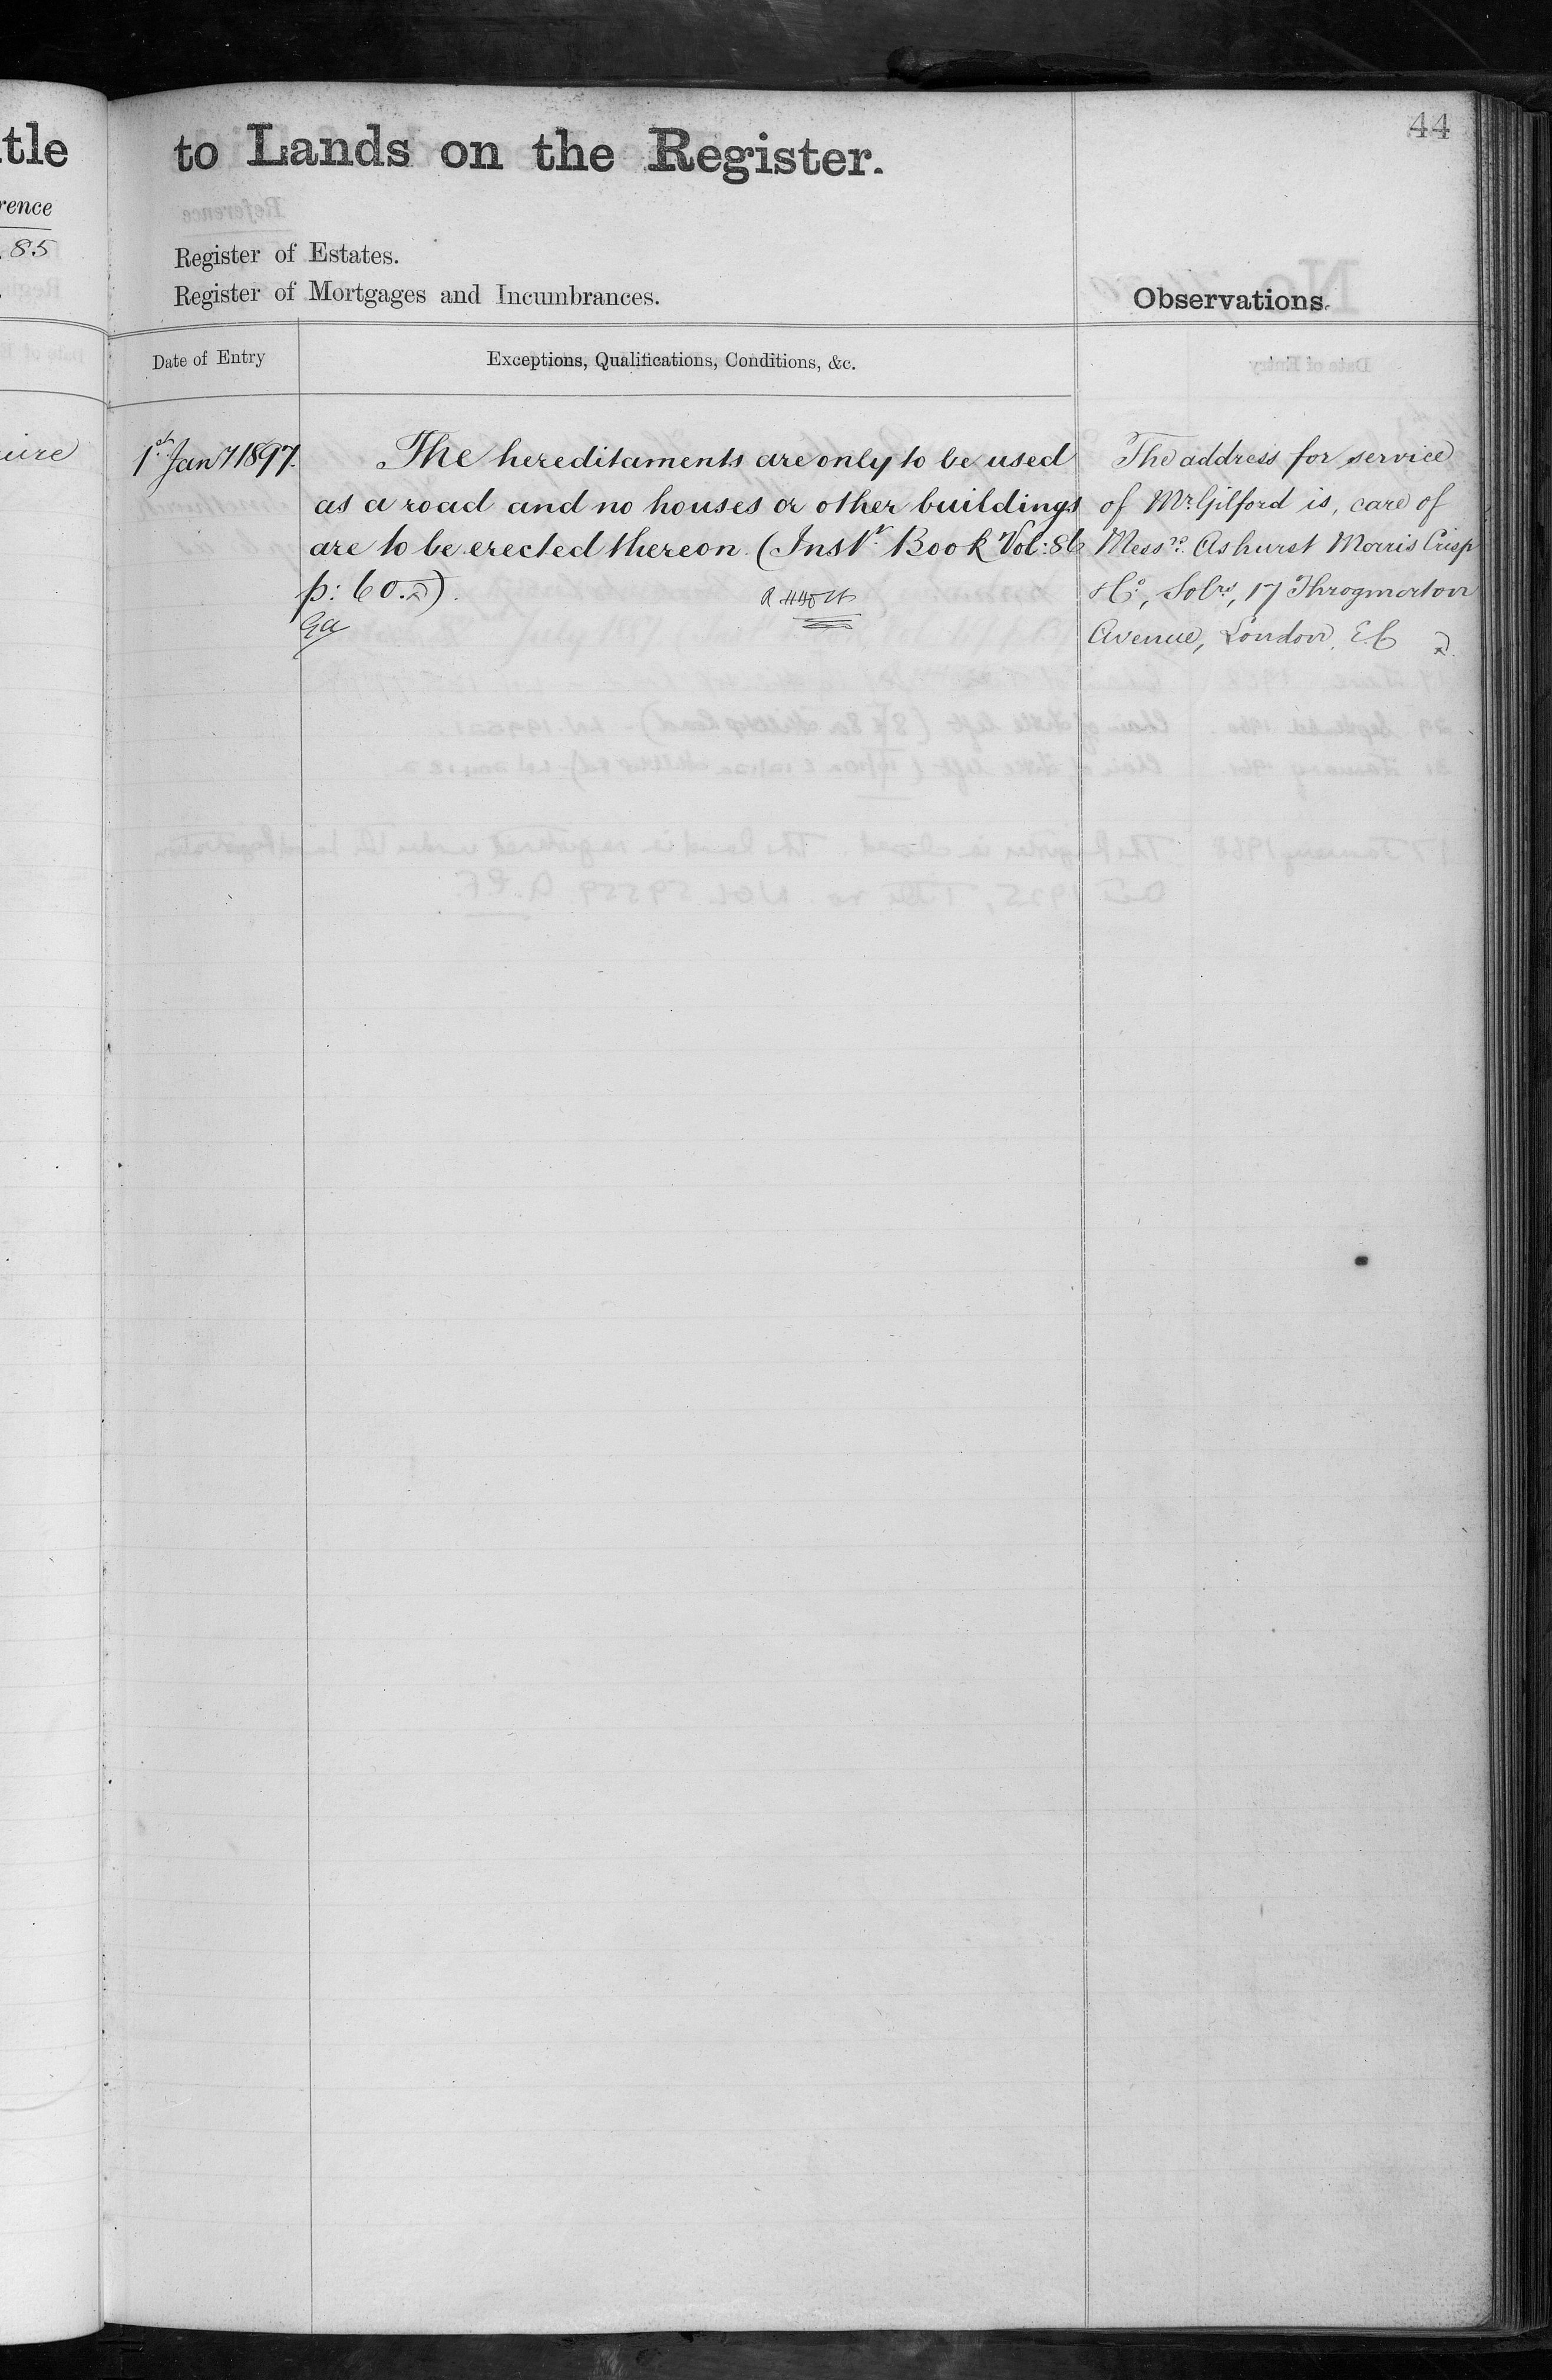 44
tle to Lands on the Register.
rence
85
Register of Estates.
Register of Mortgages and Incumbrances.
Observations.
Date of Entry
Exceptions, Qualifications, Conditions, &c.
1st Jany 1897.
The hereditaments are only to be used
as a road and no houses or other buildings
are to be erected thereon. (Instr. Book Vol: 86
p: 60.).
The address for service
of Mr. Gilford is, care of
Messrs. Ashurst Morris Crisp
& Co, Solrs, 17 Throgmorton
Avenue, London, E.C